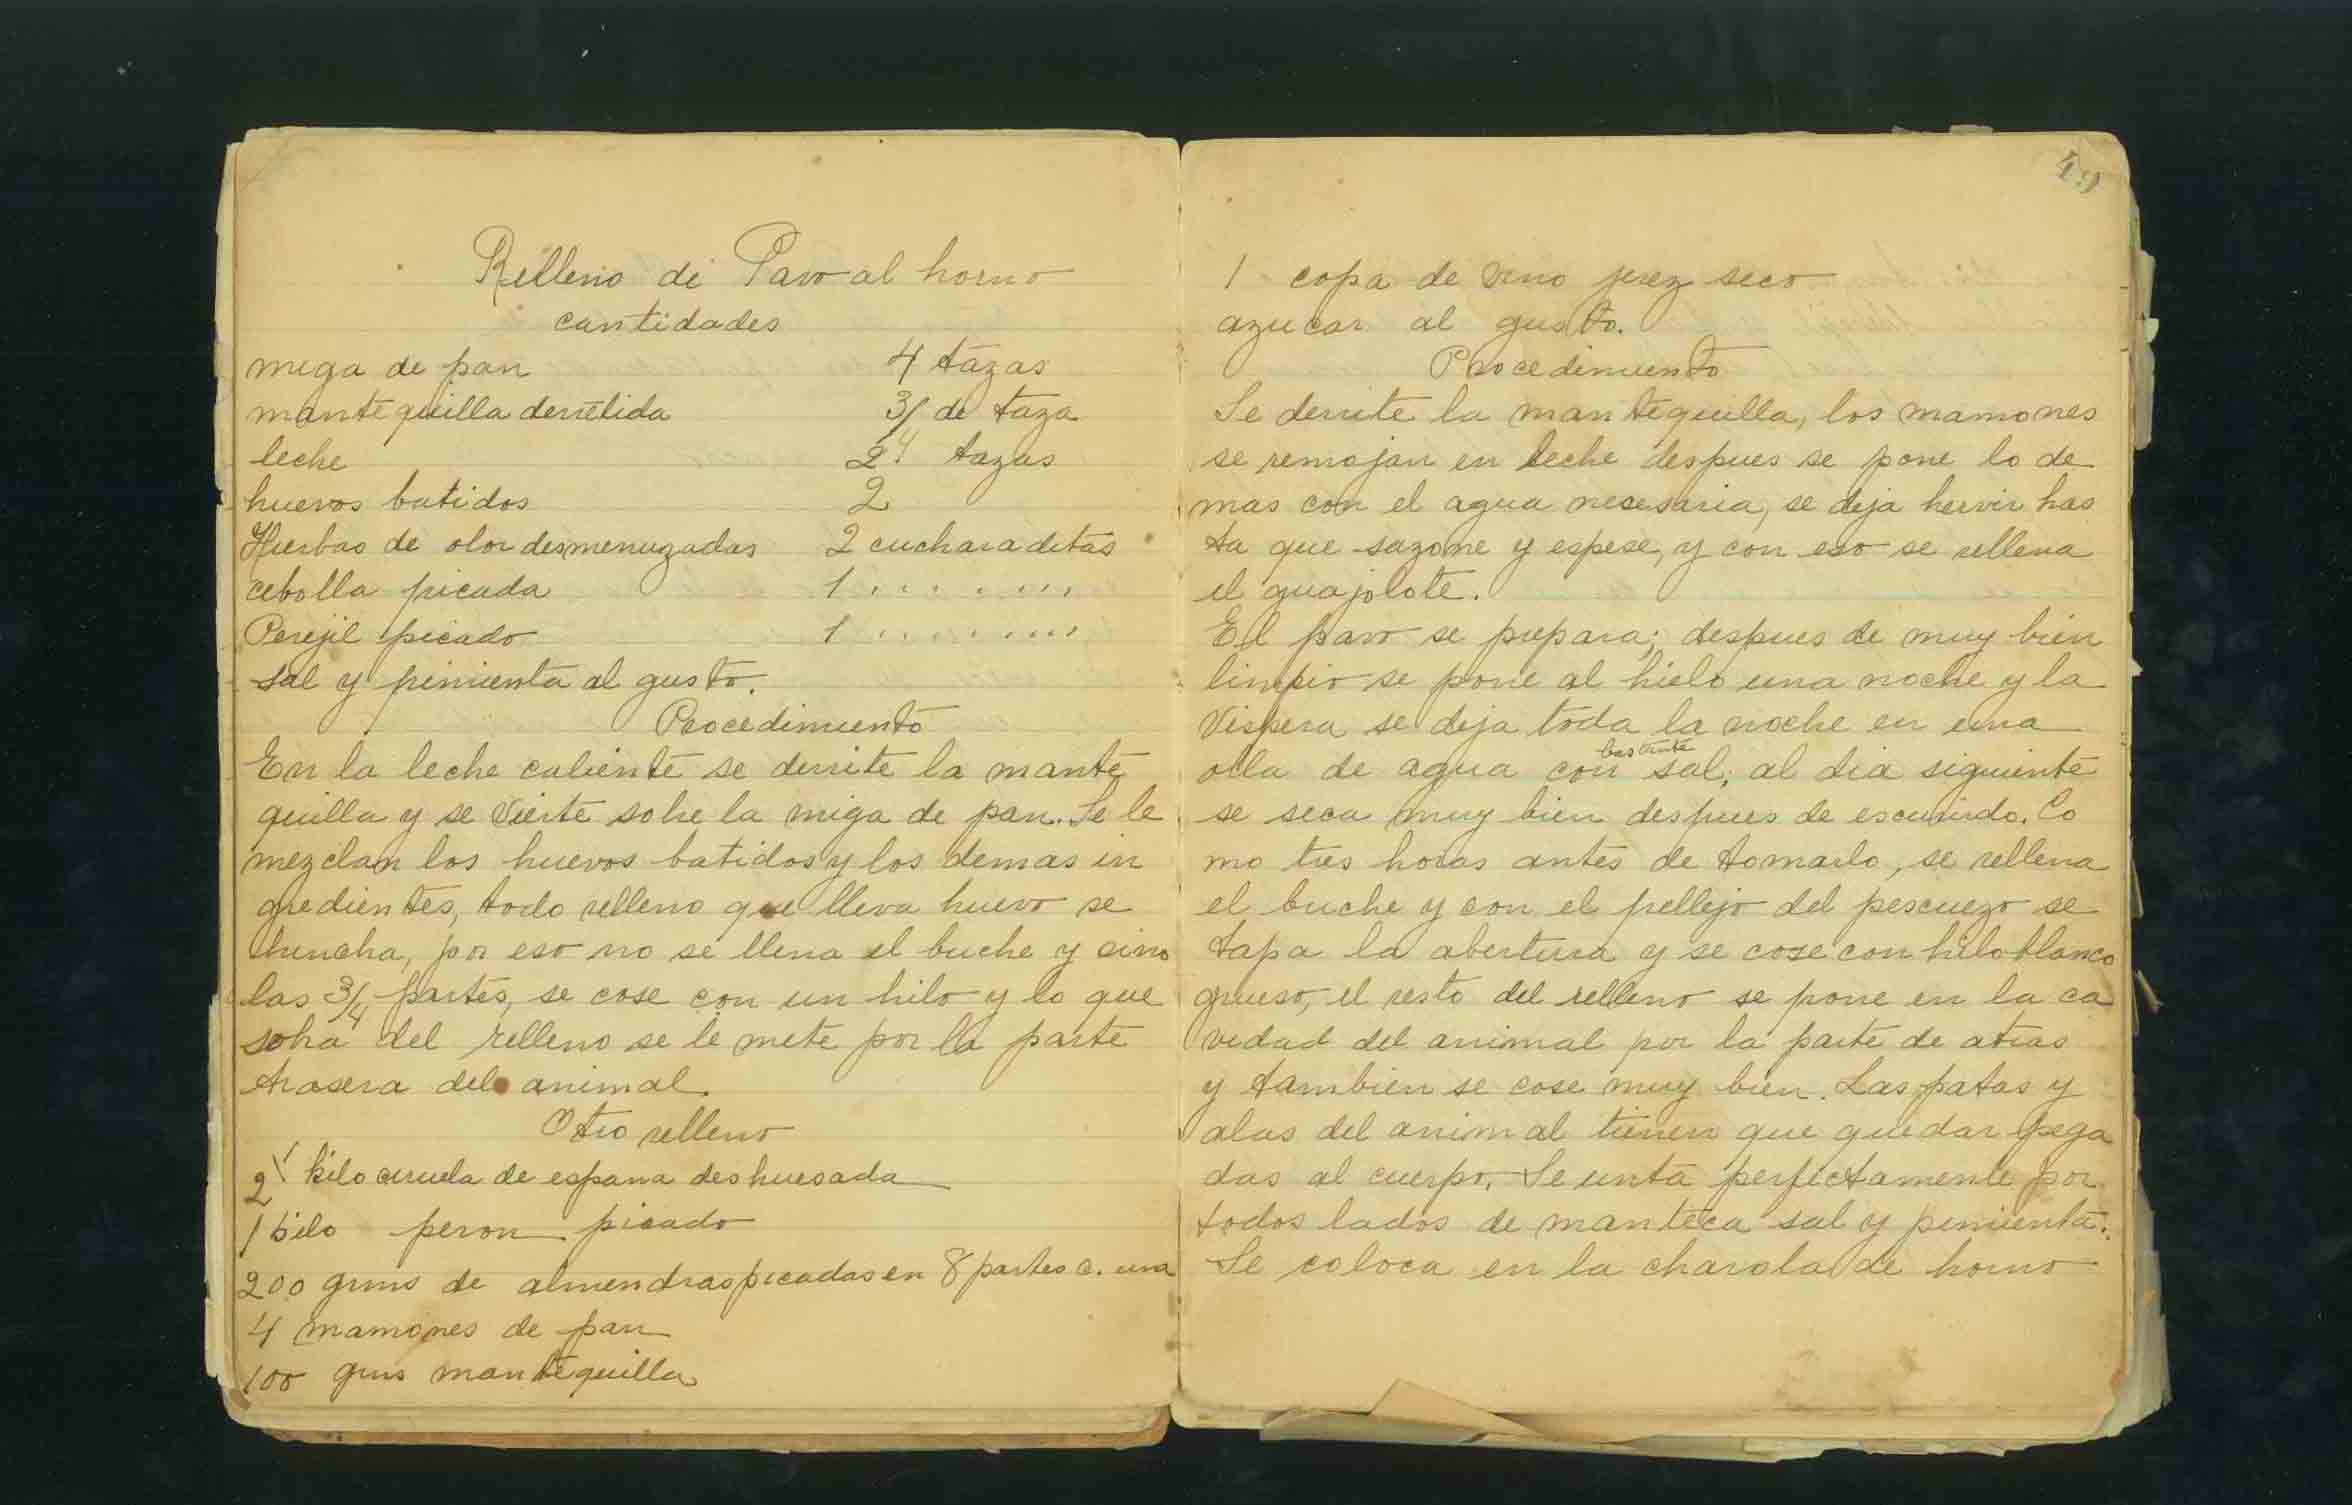 Relleno de Pavo al horno
cantidades
miga de pan 4 tazas
mantequilla derretida 3/4 de taza
leche 2 tazas
huevos batidos 2
Hierbas de olor desmenuzadas 2 cucharaditas
cebolla picada 1 . . . . . . .
Perejil picado 1 . . . . . . . .
sal y pimienta al gusto.
Procedimiento
En la leche caliente se derrite la mante
quilla y se vierte sobre la miga de pan. Se le
mezclan los huevos batidos y los demas in
gredientes, todo relleno que lleva huevo se
hincha, por eso no se llena el buche y sino
las 3/4 partes, se cose con un hilo y lo que
sobra del relleno se le mete por la parte
trasera del animal.
Otro relleno
1/2 kilo ciruela de espana deshuesada
1 kilo peron picado
200 grms de almendras picadas en 8 partes c. una
4 mamones de pan
100 grms mantequilla
49
1 copa de vino jerez seco
azucar al gusto.
Procedimiento
Se derrite la mantequilla, los mamones
se remojan en leche despues se pone lo de
mas con el agua necesaria, se deja hervir has
ta que sazone y espese, y con eso se rellena
el guajolote.
El pavo se prepara; despues de muy bien
limpio se pone al hielo una noche y la
Vispera se deja toda la noche en una
olla de agua con bastante sal; al dia siguiente
se seca muy bien despues de escurrido. Co
mo tres horas antes de tomarlo, se rellena
el buche y con el pellejo del pescuezo se
tapa la abertura y se cose con hilo blanco
grueso, el resto del relleno se pone en la ca
vedad del animal por la parte de atras
y tambien se cose muy bien. Las patas y
alas del animal tienen que quedar pega
das al cuerpo. Se unta perfectamente por
todos lados de manteca sal y pimienta.
Se coloca en la charola de horno